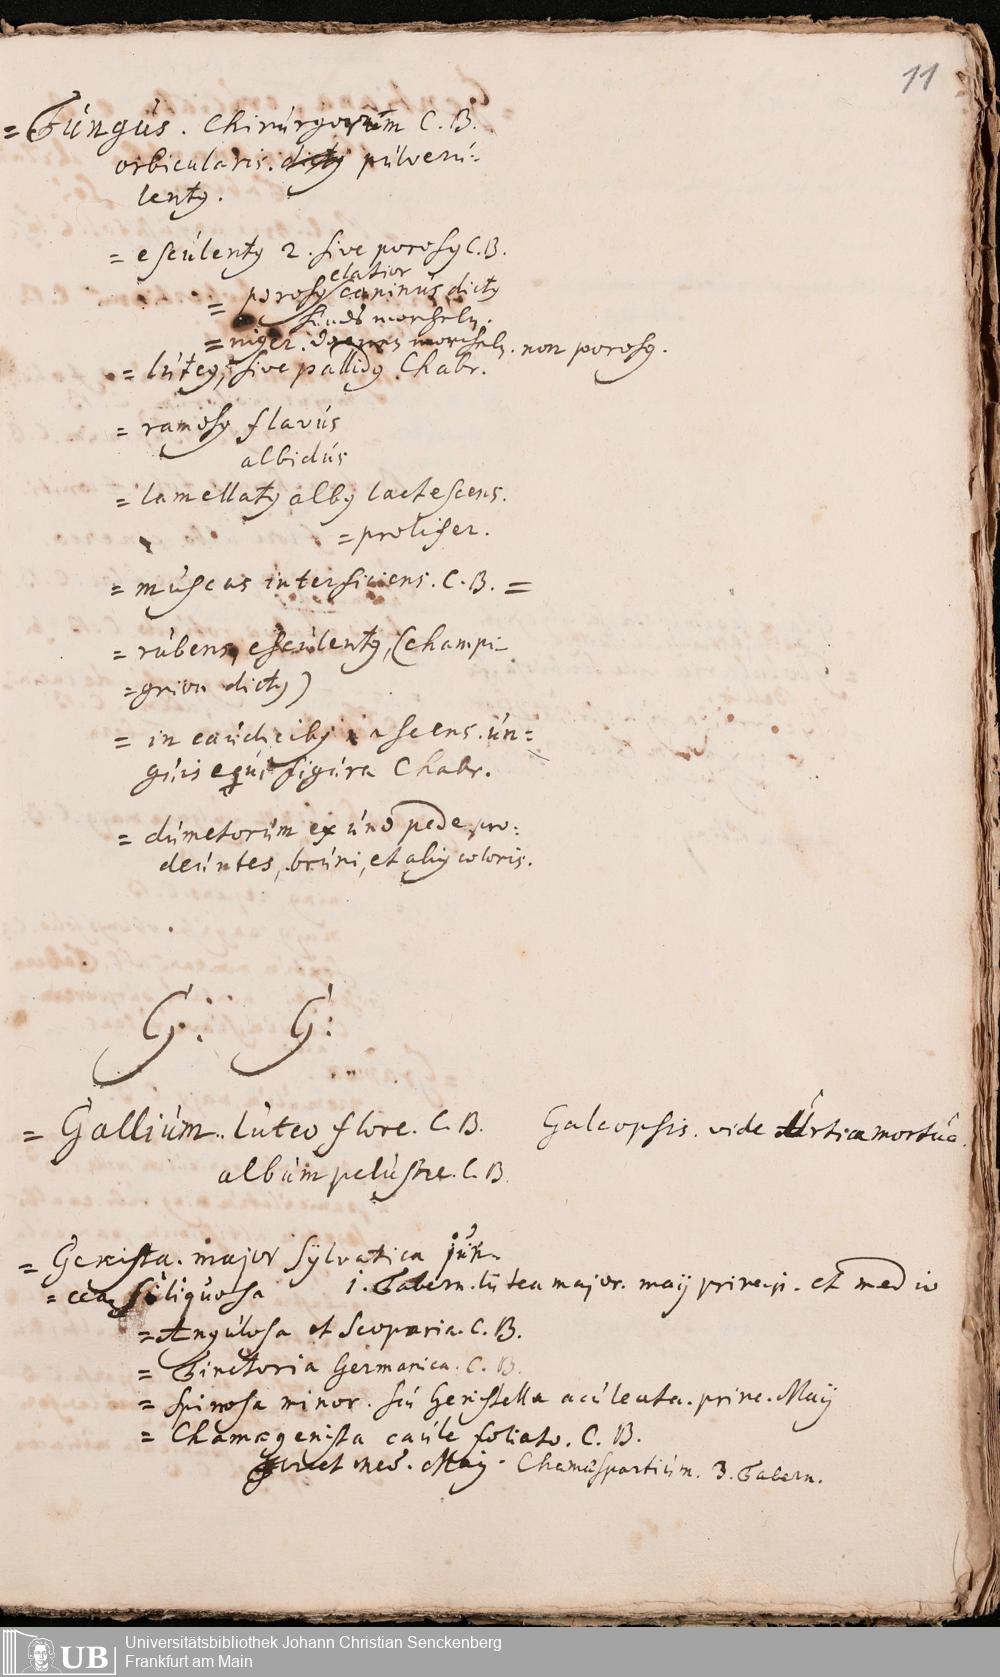 11
= Fúngús. Chirúrgorúm C.B.
orbicularis. dictꝰ púlverú=
lentꝰ.
= escúlentꝰ 2. sive porosꝰ C.B.
elatior
= porosꝰ caninús dictꝰ
= niger. non porosꝰ.
= lúteꝰ, sive pallidꝰ Chabr.
= ramosꝰ flavús
albidús
= lamellatꝰ albꝰ lactescens.
= prolifer.
= múscas interficiens. C.B. =
= rúbens, escúlentꝰ, (champi=
=gnion dictꝰ)
= in caúdicibꝰ nascens. ún=
gúis eqúi figúra Chabr.
= dúmetorúm ex únô pede pro=
deúntes, brúni, et aliꝰ coloris.
G. G:
= Galliúm. lúteo flore. C.B. Galeopsis. vide Urtica mortúa.
albúm palústre. C.B.
= Genista. major Sÿlvatica jún=
= cea, siliquosa 1. Tabern. lútea major. maij princip. et medio
= Angúlosa et Scoparia. C.B.
= Tinctoria Germanica. C.B.
= Spinosa minor. seú Genistella acúleata. princ. Maij
= Chamægenista caúle foliato. C.B.
et med. Maij. Chamæspartiúm. 3. Tabern.
UB Universitätsbibliothek Johann Christian Senckenberg
Frankfurt am Main